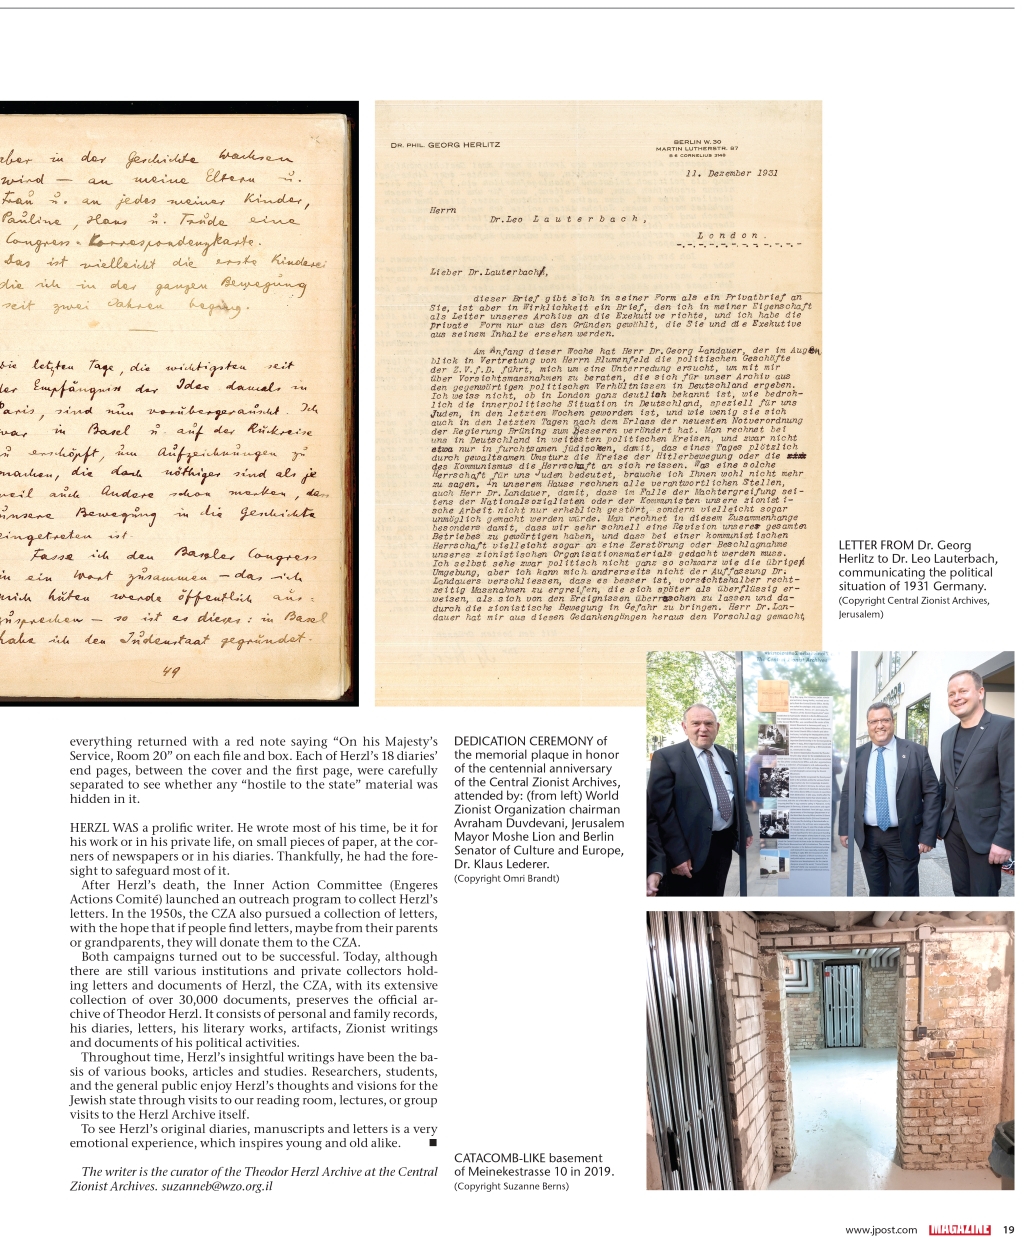 aber in der Geschichte wachsen
wird — an meine Eltern u.
Frau u. an jedes meiner Kinder,
Pauline, Hans u. Trude eine
Congress-Korrespondenzkarte.
Das ist vielleicht die erste Kinderei
die ich in der ganzen Bewegung
seit zwei Jahren beging.
die letzten Tage, die wichtigsten seit
der Empfängniss der Idee damals in
Paris, sind nun vorübergerauscht. Ich
war in Basel u. auf der Rückreise
zu erschöpft, um Aufzeichnungen zu
machen, die doch nöthiger sind als je
weil auch Andere schon merken, dass
unsere Bewegung in die Geschichte
eingetreten ist.
Fasse ich den Basler Congress
in ein Wort zusammen — das ich
mich hüten werde öffentlich aus=
zusprechen — so ist es dieses: in Basel
habe ich den Judenstaat gegründet.
49
DR. PHIL. GEORG HERLITZ
BERLIN W. 30
MARTIN LUTHERSTR. 97
11. Dezember 1931
Herrn
Dr.Leo Lauterbach,
London.
Lieber Dr.Lauterbach,
dieser Brief gibt sich in seiner Form als ein Privatbrief an
Sie, ist aber in Wirklichkeit ein Brief, den ich in meiner Eigenschaft
als Leiter unseres Archivs an die Exekutive richte, und ich habe die
private Form nur aus den Gründen gewählt, die Sie und die Exekutive
aus seinem Inhalte ersehen werden.
Am Anfang dieser Woche hat Herr Dr.Georg Landauer, der im Augen
blick in Vertretung von Herrn Blumenfeld die politischen Geschäfte
der Z.V.f.D. führt, mich um eine Unterredung ersucht, um mit mir
über Vorsichtsmassnahmen zu beraten, die sich für unser Archiv aus
den gegenwärtigen politischen Verhältnissen in Deutschland ergeben.
Ich weiss nicht, ob in London ganz deutlich bekannt ist, wie bedroh-
lich die innerpolitische Situation in Deutschland, speziell für uns
Juden, in den letzten Wochen geworden ist, und wie wenig sie sich
auch in den letzten Tagen nach dem Erlass der neuesten Notverordnung
der Regierung Brüning zum Besseren verändert hat. Man rechnet bei
uns in Deutschland in weitesten politischen Kreisen, und zwar nicht
etwa nur in furchtsamen jüdischen, damit, das eines Tages plötzlich
durch gewaltsamen Umsturz die Kreise der Hitlerbewegung oder die
des Kommunismus die Herrschaft an sich reissen. Was eine solche
Herrschaft für uns Juden bedeutet, brauche ich Ihnen wohl nicht mehr
zu sagen. In unserem Hause rechnen alle verantwortlichen Stellen,
auch Herr Dr.Landauer, damit, dass im Falle der Machtergreifung sei-
tens der Nationalsozialisten oder der Kommunisten unsere zionisti-
sche Arbeit nicht nur erheblich gestört, sondern vielleicht sogar
unmöglich gemacht werden würde. Man rechnet in diesem Zusammenhange
besonders damit, dass wir sehr schnell eine Revision unseres gesamten
Betriebes zu gewärtigen haben, und dass bei einer kommunistischen
Herrschaft vielleicht sogar an eine Zerstörung oder Beschlagnahme
unseres zionistischen Organisationsmaterials gedacht werden muss.
Ich selbst sehe zwar politisch nicht ganz so schwarz wie die übrigen
Umgebung, aber ich kann mich andrerseits nicht der Auffassung Dr.
Landauers verschliessen, dass es besser ist, vorsichtshalber recht-
zeitig Massnahmen zu ergreifen, die sich später als überflüssig er-
weisen, als sich von den Ereignissen überraschen zu lassen und da-
durch die zionistische Bewegung in Gefahr zu bringen. Herr Dr.Lan-
dauer hat mir aus diesen Gedankengängen heraus den Vorschlag gemacht,
LETTER FROM Dr. Georg
Herlitz to Dr. Leo Lauterbach,
communicating the political
situation of 1931 Germany.
(Copyright Central Zionist Archives,
Jerusalem)
everything returned with a red note saying “On his Majesty’s
Service, Room 20” on each file and box. Each of Herzl’s 18 diaries’
end pages, between the cover and the first page, were carefully
separated to see whether any “hostile to the state” material was
hidden in it.
HERZL WAS a prolific writer. He wrote most of his time, be it for
his work or in his private life, on small pieces of paper, at the cor-
ners of newspapers or in his diaries. Thankfully, he had the fore-
sight to safeguard most of it.
After Herzl’s death, the Inner Action Committee (Engeres
Actions Comité) launched an outreach program to collect Herzl’s
letters. In the 1950s, the CZA also pursued a collection of letters,
with the hope that if people find letters, maybe from their parents
or grandparents, they will donate them to the CZA.
Both campaigns turned out to be successful. Today, although
there are still various institutions and private collectors hold-
ing letters and documents of Herzl, the CZA, with its extensive
collection of over 30,000 documents, preserves the official ar-
chive of Theodor Herzl. It consists of personal and family records,
his diaries, letters, his literary works, artifacts, Zionist writings
and documents of his political activities.
Throughout time, Herzl’s insightful writings have been the ba-
sis of various books, articles and studies. Researchers, students,
and the general public enjoy Herzl’s thoughts and visions for the
Jewish state through visits to our reading room, lectures, or group
visits to the Herzl Archive itself.
To see Herzl’s original diaries, manuscripts and letters is a very
emotional experience, which inspires young and old alike. ■
The writer is the curator of the Theodor Herzl Archive at the Central
Zionist Archives. suzanneb@wzo.org.il
DEDICATION CEREMONY of
the memorial plaque in honor
of the centennial anniversary
of the Central Zionist Archives,
attended by: (from left) World
Zionist Organization chairman
Avraham Duvdevani, Jerusalem
Mayor Moshe Lion and Berlin
Senator of Culture and Europe,
Dr. Klaus Lederer.
(Copyright Omri Brandt)
The Central Zionist Archives
CATACOMB-LIKE basement
of Meinekestrasse 10 in 2019.
(Copyright Suzanne Berns)
www.jpost.com MAGAZINE 19